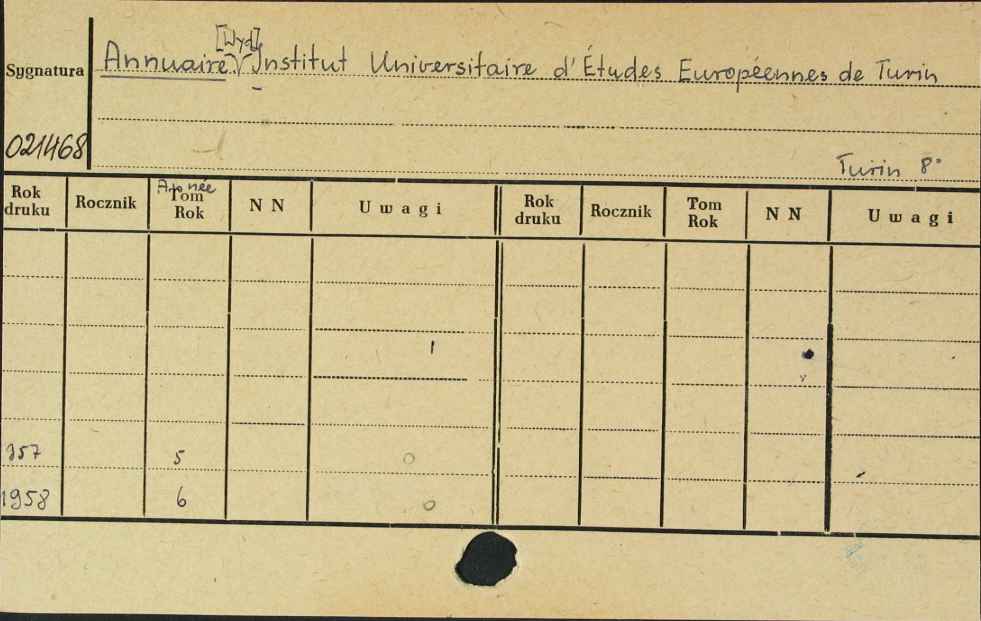 [Wyd]
Sygnatura Annuaire. Institut Universitaire d'Études Européennes de Turin
021468
Turin 8°
Rok druku Rocznik Année Tom Rok N N Uwagi Rok druku Rocznik Tom Rok N N Uwagi
957 5 o
1958 6 o